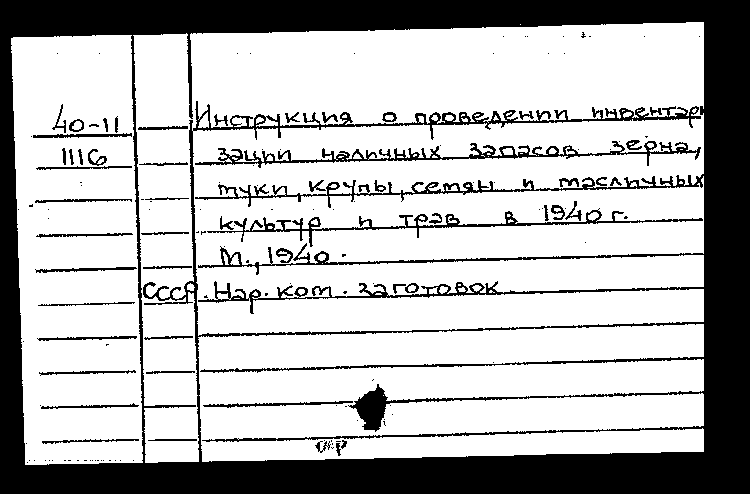 40-11 Инструкция о проведении инвентари
1116 зации наличных запасов зерна,
муки, крупы, семян и масличных
культур и трав в 1940 г.
М., 1940.
СССР. Нар. ком. заготовок.